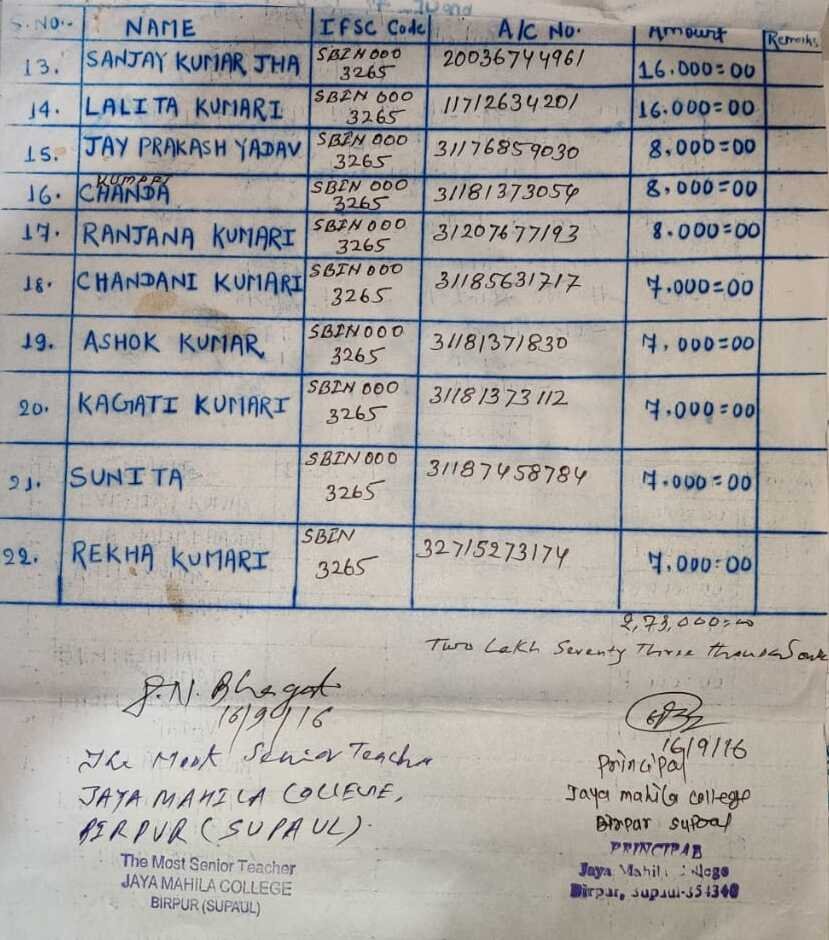 S.NO.. NAME IFSC Code A/C No. Amount Remarks
13. SANJAY KUMAR JHA SBIN000 3265 20036744961 16.000=00
14. LALITA KUMARI SBIN000 3265 11712634201 16.000=00
15. JAY PRAKASH YADAV SBIN000 3265 31176859030 8,000=00
16. CHANDA KUMARI SBIN000 3265 31181373054 8,000=00
17. RANJANA KUMARI SBIN000 3265 31207677193 8.000=00
18. CHANDANI KUMARI SBIN000 3265 31185631717 7.000=00
19. ASHOK KUMAR SBIN000 3265 31181371830 7,000=00
20. KAGATI KUMARI SBIN000 3265 31181373112 7.000=00
21. SUNITA SBIN000 3265 31187458784 7.000=00
22. REKHA KUMARI SBIN 3265 32715273174 7.000=00
2,73,000=00
Two Lakh Seventy Three thousand
16/9/16
The Most Senior Teacher
JAYA MAHILA COLLEGE,
BIRPUR (SUPAUL).
The Most Senior Teacher
JAYA MAHILA COLLEGE
BIRPUR (SUPAUL)
16/9/16
Principal
Jaya mahila college
Birpur supaul
PRINCIPAL
Jaya Mahila College
Birpur, Supaul-